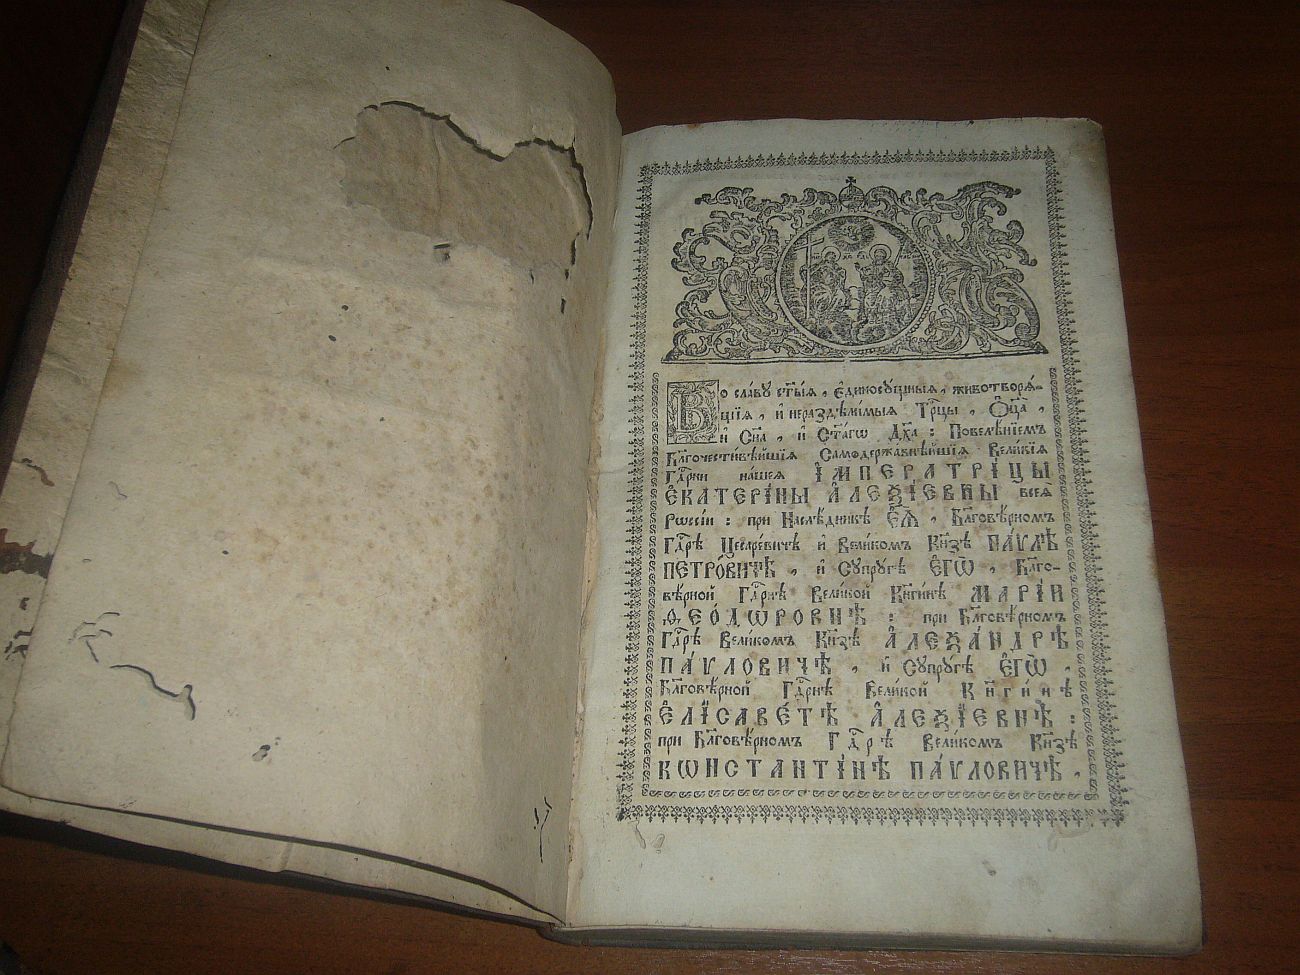 Во сла́ву ст҃ы́ѧ, є҆диносꙋ́щныѧ, животворѧ́-
щїѧ, и҆ нераздѣ́лимыѧ Трⷪ҇цы, Ѻ҆ц҃а̀,
и҆ Сн҃а, и҆ Ст҃а́гѡ Дх҃а: Повелѣ́нїемъ
Бл҃гочести́вѣйшїѧ Самодержа́внѣйшїѧ Вели́кїѧ
Гдⷭ҇рни на́шеѧ І҆МПЕРАТРІ́ЦЫ
Е҆КАТЕРІ́НЫ А҆ЛЕѮІ́ЕВНЫ всеѧ̀
Рѡссі́и: при Наслѣ́дникѣ Е҆ѧ̀, Бл҃говѣ́рномъ
Гдⷭ҇рѣ Цесаре́вичѣ и҆ Вели́комъ Кн҃зѣ ПА́ѴЛѢ
ПЕТРО́ВИЧѢ, и҆ Сꙋпрꙋ́гѣ Е҆ГѠ̀, Бл҃го-
вѣ́рной Гдⷭ҇рнѣ Вели́кой Кнг҃и́нѣ МАРІ́И
Ѳ҆ЕО́ДѠРОВНѢ: при Бл҃говѣ́рномъ
Гдⷭ҇рѣ Вели́комъ Кн҃зѣ А҆ЛЕѮА́НДРѢ
ПА́ѴЛОВИЧѢ, и҆ Сꙋпрꙋ́гѣ Е҆ГѠ̀,
Бл҃говѣ́рной Гдⷭ҇рнѣ Вели́кой Кнг҃и́нѣ
Е҆ЛІСАВЕ́ТѢ А҆ЛЕѮІ́ЕВНѢ:
при Бл҃говѣ́рномъ Гдⷭ҇рѣ Вели́комъ Кн҃зѣ
КѠНСТАНТІ́НѢ ПА́ѴЛОВИЧѢ,